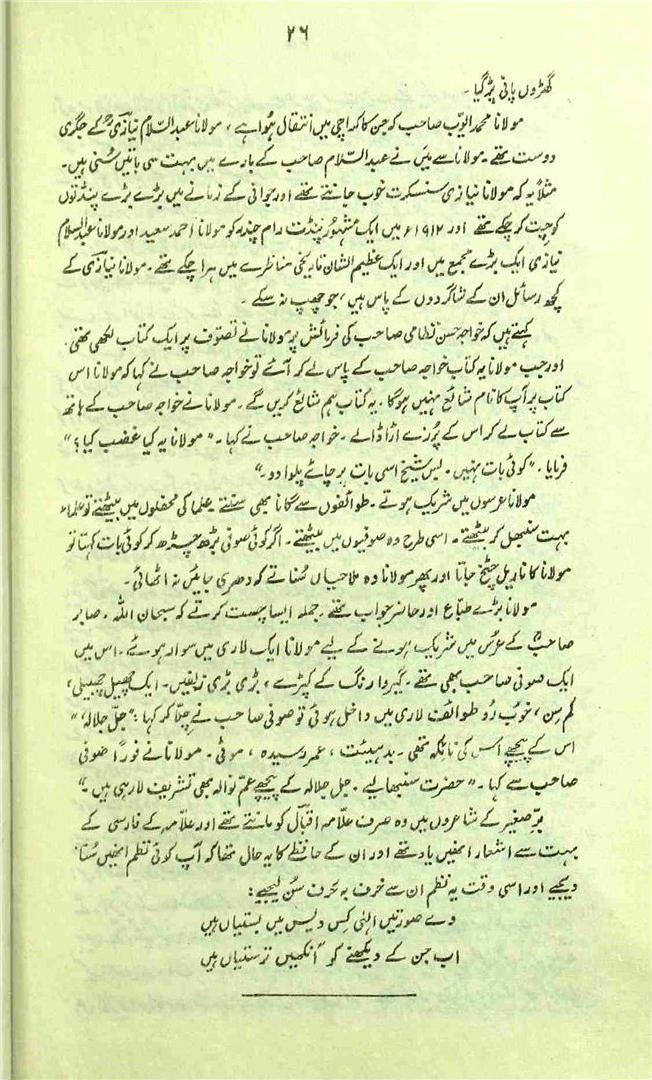 ۲۶
گھڑوں پانی پڑ گیا۔
مولانا محمد ایوب صاحب کہ جن کا کراچی میں انتقال ہوا ہے، مولانا عبدالسّلام نیازیؒ کے جگری
دوست تھے۔ مولانا سے میں نے عبدالسّلام صاحب کے بارے میں بہت سی باتیں سُنی ہیں۔
مثلاً یہ کہ مولانا نیازی سنسکرت خوب جانتے تھے اور جوانی کے زمانے میں بڑے بڑے پنڈتوں
کو چِت کر چکے تھے اور ۱۹۱۲ء میں ایک مشہور پنڈت رام چندر کو مولانا احمد سعید اور مولانا عبدالسلام
نیازی ایک بڑے مجمع میں اور ایک عظیم الشان تاریخی مناظرے میں ہرا چکے تھے۔ مولانا نیازی کے
کچھ رسائل ان کے شاگردوں کے پاس ہیں، جو چھپ نہ سکے۔
کہتے ہیں کہ خواجہ حسن نظامی صاحب کی فرمائش پر مولانا نے تصوّف پر ایک کتاب لکھی تھی۔
اور جب مولانا یہ کتاب خواجہ صاحب کے پاس لے کر آئے تو خواجہ صاحب نے کہا کہ مولانا اس
کتاب پر آپ کا نام شائع نہیں ہوگا۔ یہ کتاب ہم شائع کریں گے۔ مولانا نے خواجہ صاحب کے ہاتھ
سے کتاب لے کر اس کے پُرزے اڑا ڈالے۔ خواجہ صاحب نے کہا۔ "مولانا یہ کیا غضب کیا؟"
فرمایا۔ "کوئی بات نہیں۔ بس شیخ اسی بات پر چائے پلوا دو۔"
مولانا عرسوں میں شریک ہوتے۔ طوائفوں سے گانا بھی سنتے۔ علما کی محفلوں میں بیٹھتے تو علماء
بہت سنبھل کر بیٹھتے۔ اسی طرح وہ صوفیوں میں بیٹھتے۔ اگر کوئی صوفی بڑھ چڑھ کر کوئی بات کہتا تو
مولانا کا ناریل چٹخ جاتا اور پھر مولانا وہ ملاحیاں سُناتے کہ دھری جائیں نہ اٹھائی۔
مولانا بڑے طبّاع اور حاضر جواب تھے۔ جملہ ایسا چست کرتے کہ سبحان اللہ۔ صابر
صاحبؒ کے عرس میں شریک ہونے کے لیے مولانا ایک لاری میں سوار ہوئے۔ اس میں
ایک صوفی صاحب بھی تھے۔ گیروا رنگ کے کپڑے، بڑی بڑی زلفیں۔ ایک چھیل چھبیلی،
کم سِن، خوب رُو طوائف لاری میں داخل ہوئی تو صوفی صاحب نے چلّا کر کہا: "جلّ جلالہٗ"
اس کے پیچھے اس کی نائکہ تھی۔ بدہیئت، عمر رسیدہ، موٹی۔ مولانا نے فوراً صوفی
صاحب سے کہا۔ "حضرت سنبھالیے۔ جل جلالہ کے پیچھے عمّ نوالہ بھی تشریف لا رہی ہیں۔"
برّصغیر کے شاعروں میں وہ صرف علّامہ اقبالؔ کو مانتے تھے اور علّامہ کے فارسی کے
بہت سے اشعار انھیں یاد تھے اور ان کے حافظے کا یہ حال تھا کہ آپ کوئی نظم انھیں سُنا
دیجیے اور اسی وقت یہ نظم ان سے حرف بہ حرف سُن لیجیے:
وے صورتیں الٰہی کِس دیس میں بستیاں ہیں
اب جن کے دیکھنے کو آنکھیں ترستیاں ہیں